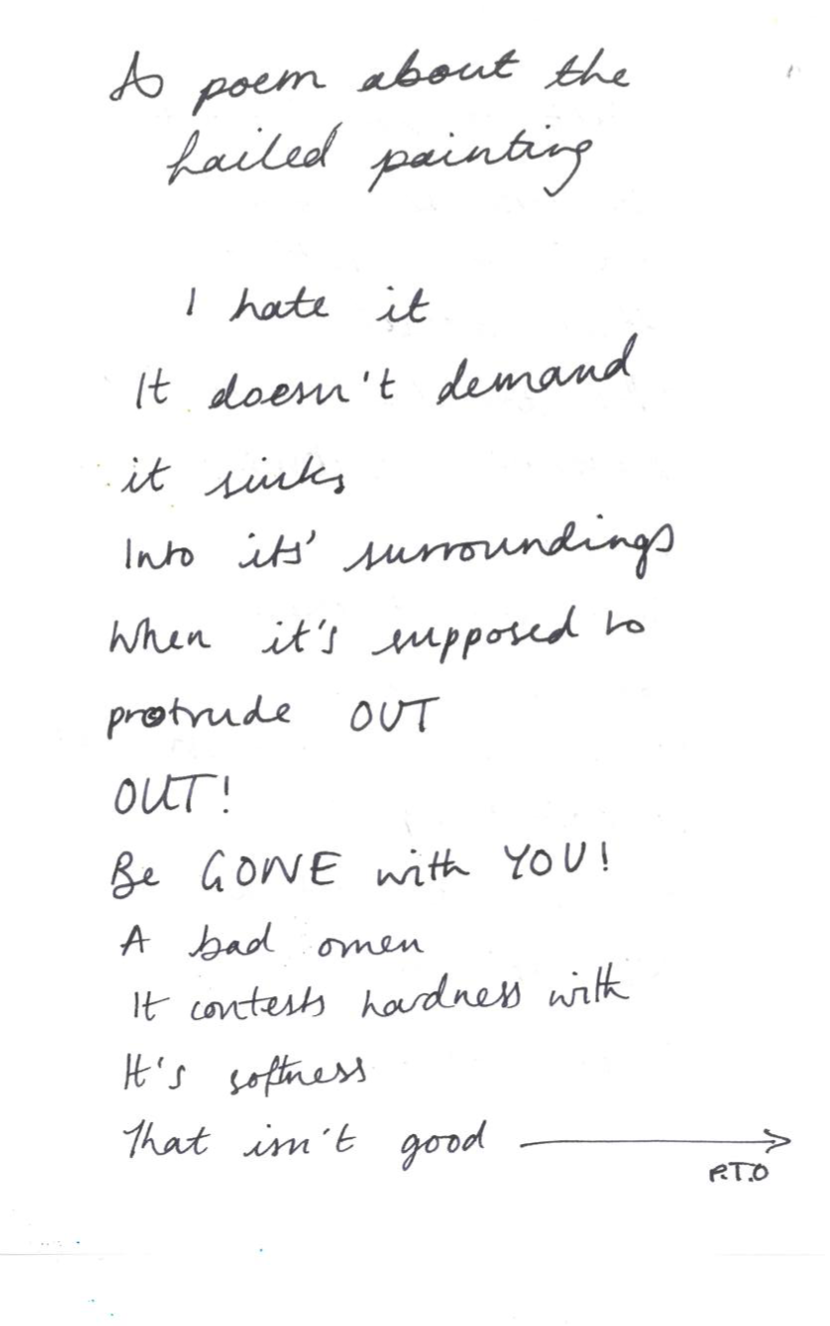 A poem about the
hailed painting
I hate it
It doesn't demand
it sinks
Into its' surroundings
When it's supposed to
protrude OUT
OUT!
Be GONE with YOU!
A bad omen
It contests hardness with
It's softness
That isn't good
P.T.O